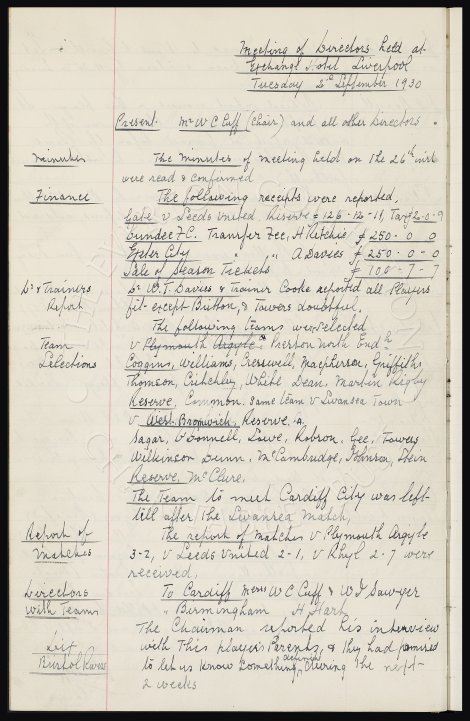 Meeting of Directors held at
Exchange Hotel Liverpool
Tuesday 2nd September 1930
Present. Mr W C Cuff (chair) and all other Directors.
Minutes The Minutes of Meeting held on the 26th inst
were read & confirmed
Finance The following receipts were reported,
Gate v Leeds United Reserve £126-12-11, Tax £20-0-9
Dundee F.C. Transfer Fee, H Ritchie £250-0 0
Exeter City " " A Davies £250-0-0
Sale of Season Tickets £100-7-7
Dr & Trainers Report Dr W. T. Davies & Trainer Cooke reported all Players
fit except Britton, & Towers doubtful.
The following teams were selected
Team Selections v Plymouth Argyle Preston North End h
Coggins, Williams, Cresswell, MacPherson, Griffiths
Thomson, Critchley, White Dean, Martin Rigby
Reserve, Common. Same team v Swansea Town
v West Bromwich, Reserve. a.
Sagar, O'Donnell, Lowe, Robson, Gee, Towers
Wilkinson Dunn, McCambridge, Johnson, Stein
Reserve, McClure,
The Team to meet Cardiff City was left
till after the Swansea Match,
Report of Matches The report of matches v Plymouth Argyle
3-2, v Leeds United 2-1, v Rhyl 2-7 were
received,
Directors with Teams To Cardiff Messrs W C Cuff & W J Sawyer
" Birmingham H Hart
The Chairman reported his interview
Bristol Rovers with this players Parents, & they had promised
to let us know something definite during the next
2 weeks